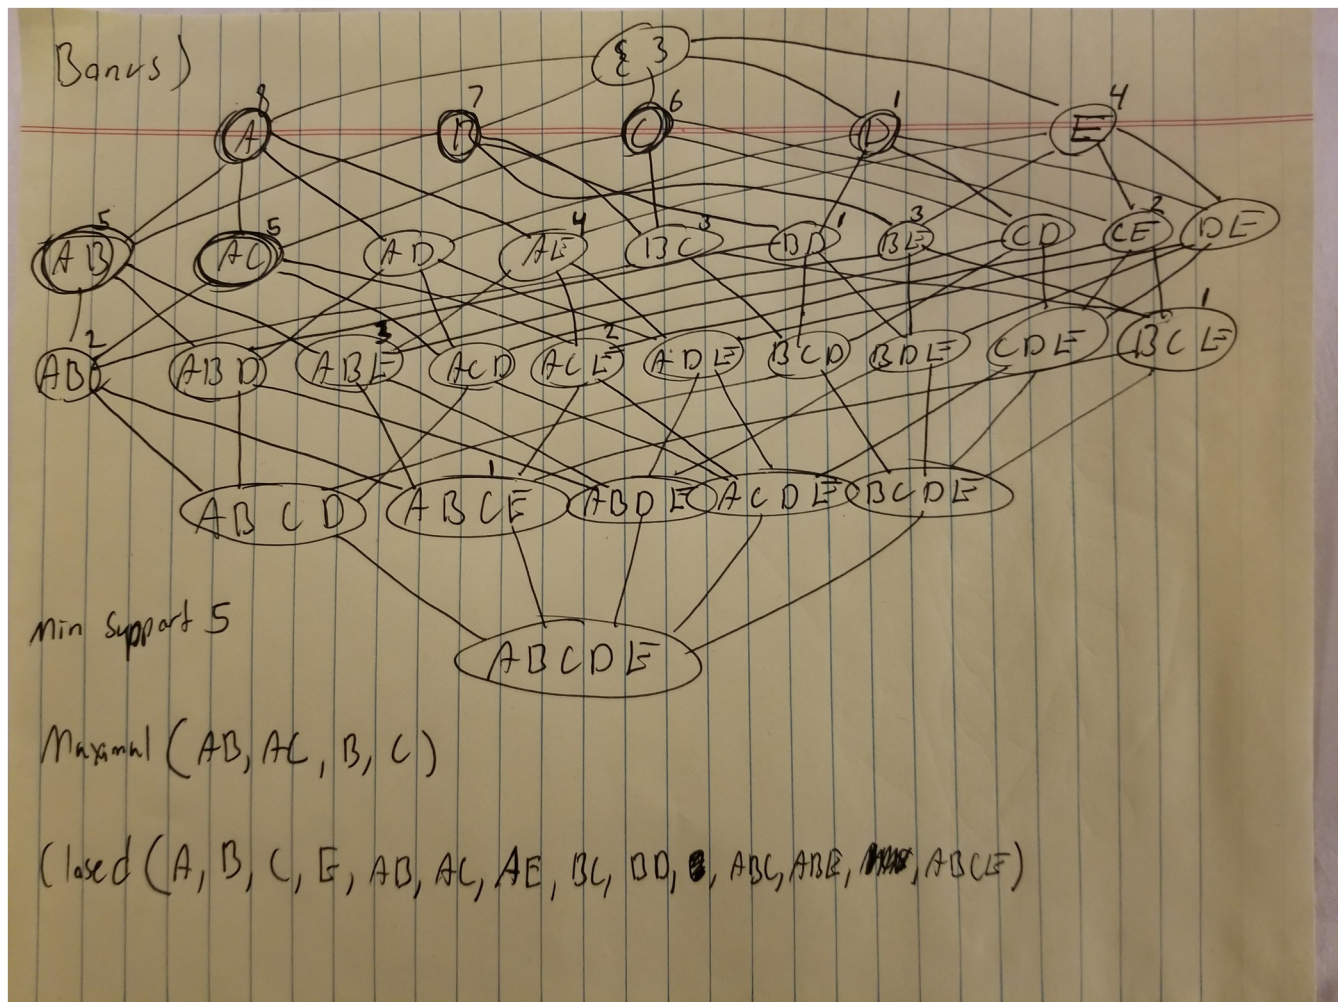 Bonus)
{ }
8 7 6 1 4
A B C D E
5 5 4 3 1 3 2
AB AC AD AE BC BD BE CD CE DE
2 3 2 1
ABC ABD ABE ACD ACE ADE BCD BDE CDE BCE
1
ABCD ABCE ABDE ACDE BCDE
ABCDE
Min Support 5
Maximal (AB, AC, B, C)
Closed (A, B, C, E, AB, AC, AE, BC, BD, , ABC, ABE, , ABCE)